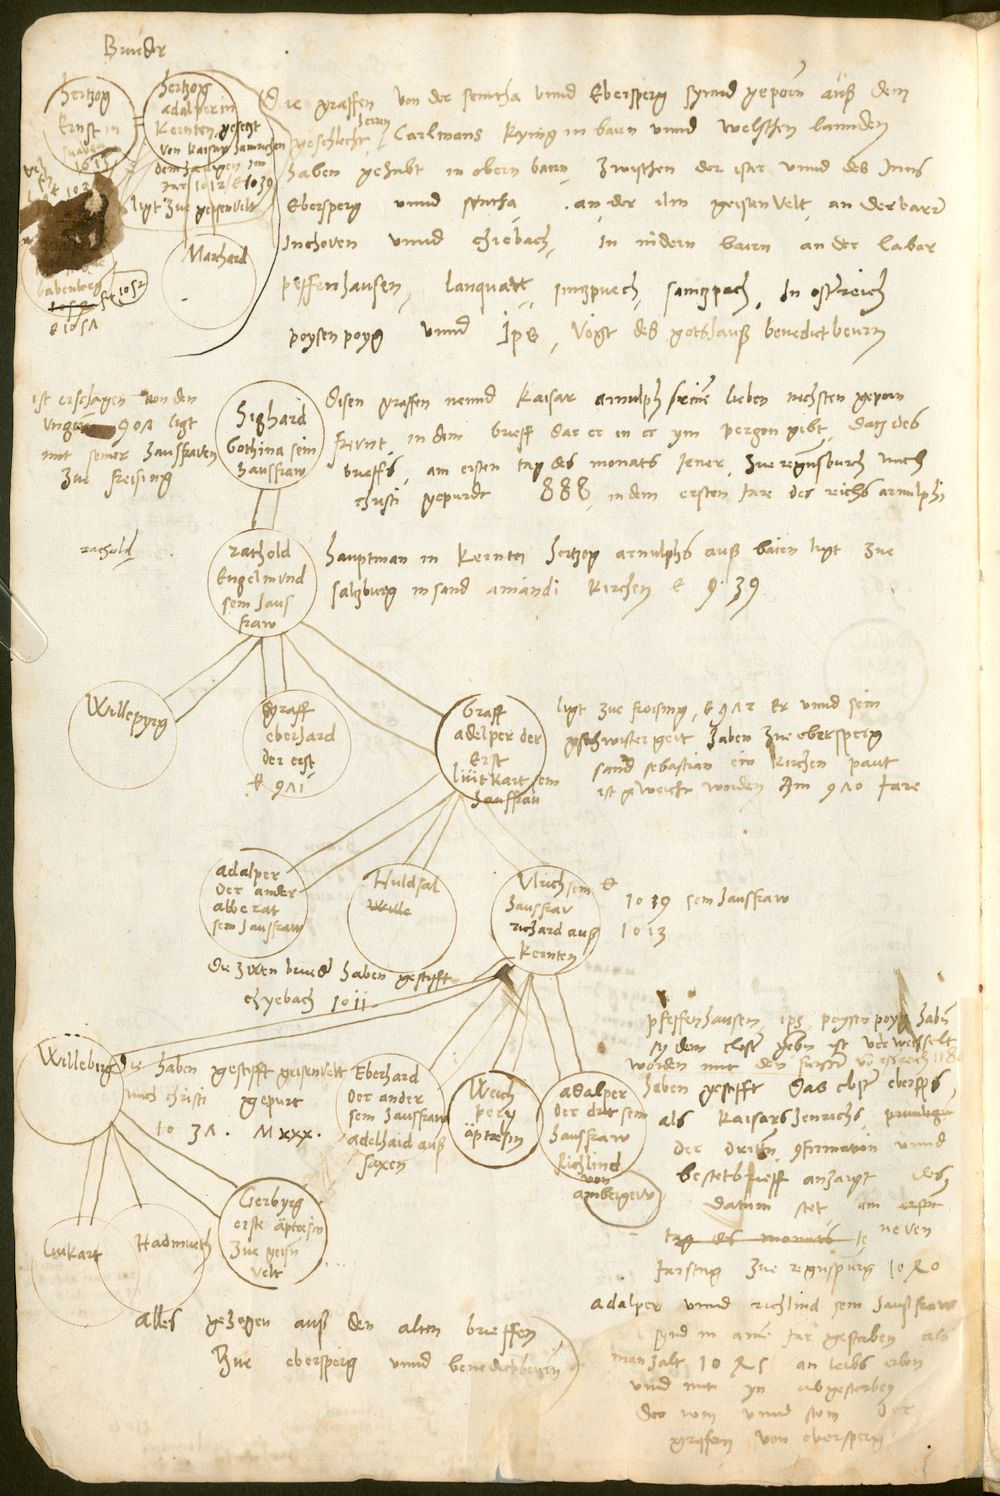 Bruder
Hertzog
Ernst in
Hertzog
adalper in
Kernten gesetzt
von Kaiser Hainrichen
dem hailigen im
Jar 1012 † 1039
ligt zue geisenvelt
Marchard
babenberg
† 1052
Die graffen von der semtha unnd Ebersperg synnd geporn auß dem
geschlecht herren Carlmans Kynig in bairn unnd welschen lannden
haben gehabt in obern bairn zwischen der iser unnd des Inns
Ebersperg unnd semtha, an der ilm geisenvelt, an der barr
Inchoven unnd chiebach, In nidern bairn an der labar
pfeffenhausen, lanquatt, sanzpach, In osterreich
poysenpoyg unnd Ips, Vogt des gotshauß benedictbeurn
ist erschagen von den
ungern 907 ligt
mit seiner hausfrawen
zue freising
Sighard
Gothina sein
hausfraw
Disen graffen nennd Kaisar arnulph seine lieben nechsten geporn
freint, in dem brieff dar er in er ym pergon gibt, Datz des
brieffs, am ersten tag des monats Jener, zue regenspurch nach
christi gepurde 888, in dem ersten Jare des reichs arnulphi
rathold
rathold
Engelmund
sein haus
fraw
hauptman in Kernten hertzog arnulphs auß baien ligt zue
saltzburg in sand amandi Kirchen † 939
Willepyrg
Graff
eberhard
der erst
† 971
Graff
adelper der
Erst
liutkart sein
hausfrau
ligt zue freising, † 972 Er unnd sein
geschwistergeit haben zue ebersperg
sand sebastian ein Kirchen paut
ist geweicht worden Am 970 Jare
Adalper
Der ander
alberat
sein hausfraw
Huldsal
Wille
Ulrich sein
hausfrav
richard auß
Kernten
† 1039 sein hausfraw
1013
die zwen bruder haben gestifft
chyebach 1011
Willebirg
die haben gestifft geisenvelt
nach christi gepurt
1037. Mxxx.
Eberhard
Der ander
sein hausfraw
adelhaid auß
saxen
Weich
pery
äptesin
adalper
Der drit sein
hausfraw
Richlind
von
ambergerw
pfeffenhausen, ips, poysenpoyg haben
sy dem closter geben ist verwechselt
worden mit den fursten von osterreich
haben gestifft das closter eberspg,
als Kaisars henrichs, privilegii
der dritten, confirmation unnd
bestetbrieff anzaigt des,
datum stet am ersten
tag des monats
neven
Jarstag zue regnspurg 1040
adalper unnd richlind sein haußfraw
synd in aim Jar gestorben als
man zalt 1045 an leibs erben
unnd mit yn abgestorben
der nam unnd stam der
grafen von ebersperg
Liukart
Hadmueth
Gerbyrg
erste äptesin
zue geisen
velt
alles gezogen auß den alten brieffen
zue ebersperg unnd benedictbeurn